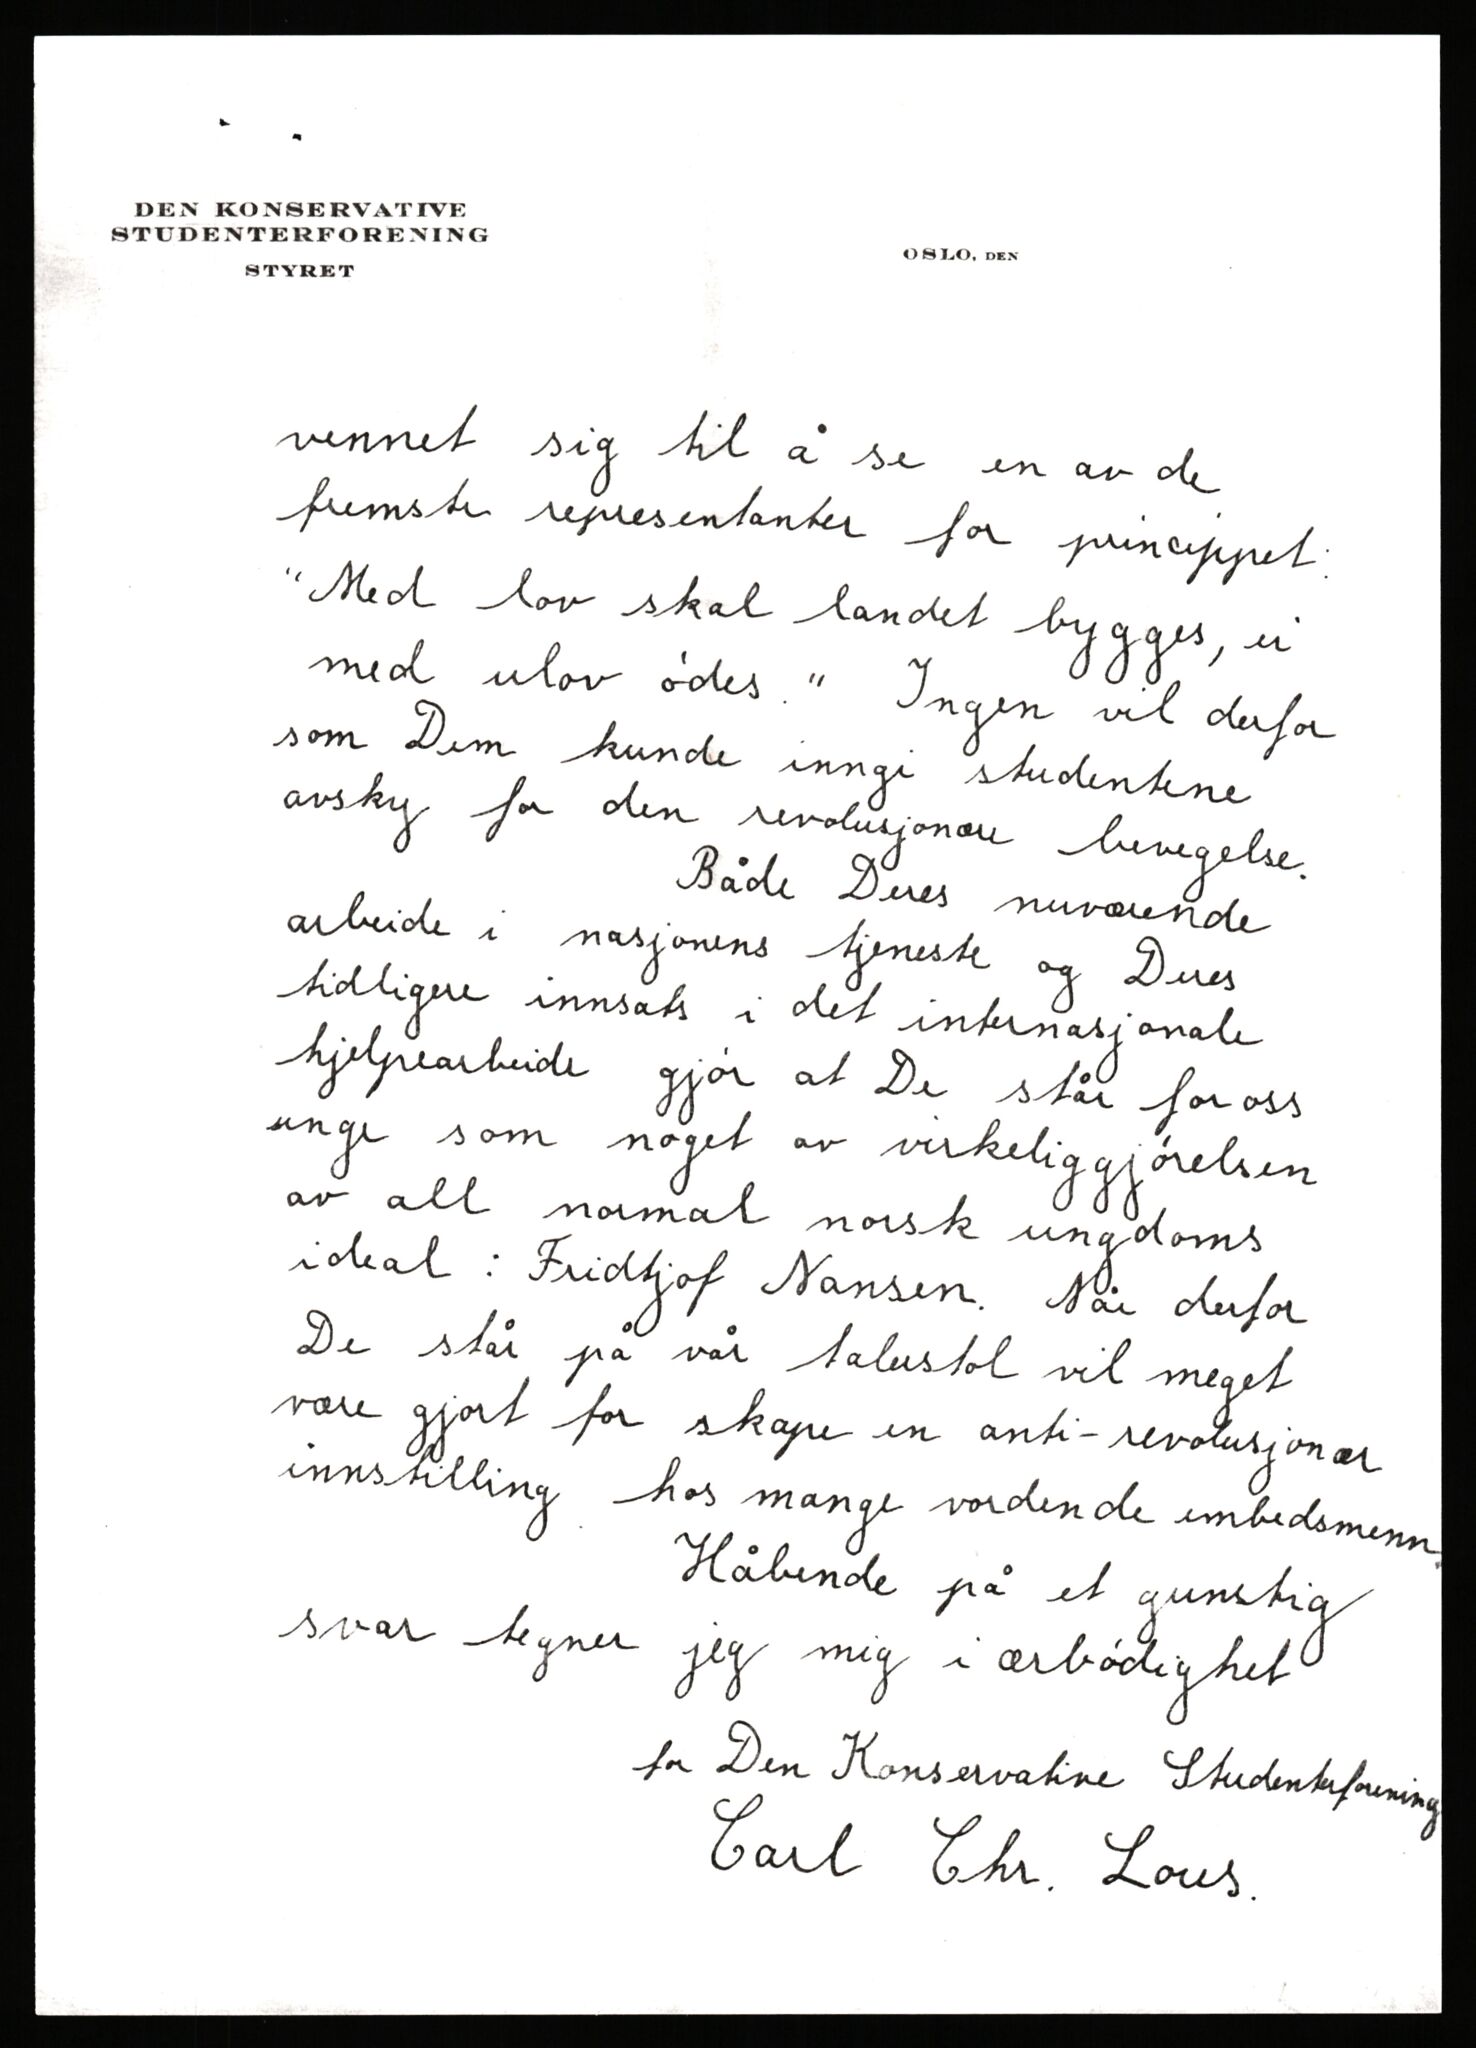 DEN KONSERVATIVE
STUDENTERFORENING
STYRET
OSLO, DEN
vennet sig til å se en av de
fremste representanter for princippet:
"Med lov skal landet bygges, ei
med ulov ódes." Ingen vil derfor
som Dem kunde inngi studentene
avsky for den revolusjonære bevegelse.
Både Deres nuværende
arbeide i nasjonens tjeneste og Deres
tidligere innsats i det internasjonale
hjelpearbeide gjór at De står for oss
unge som noget av virkeliggjórelsen
av all normal norsk ungdoms
ideal: Fridtjof Nansen. Når derfor
De står på vår talerstol vil meget
være gjort for skape en anti-revolusjonær
innstilling hos mange vordende embedsmenn.
Håbende på et gunstig
svar tegner jeg mig i ærbódighet
for Den Konservative Studenterforening
Carl Chr. Lous.